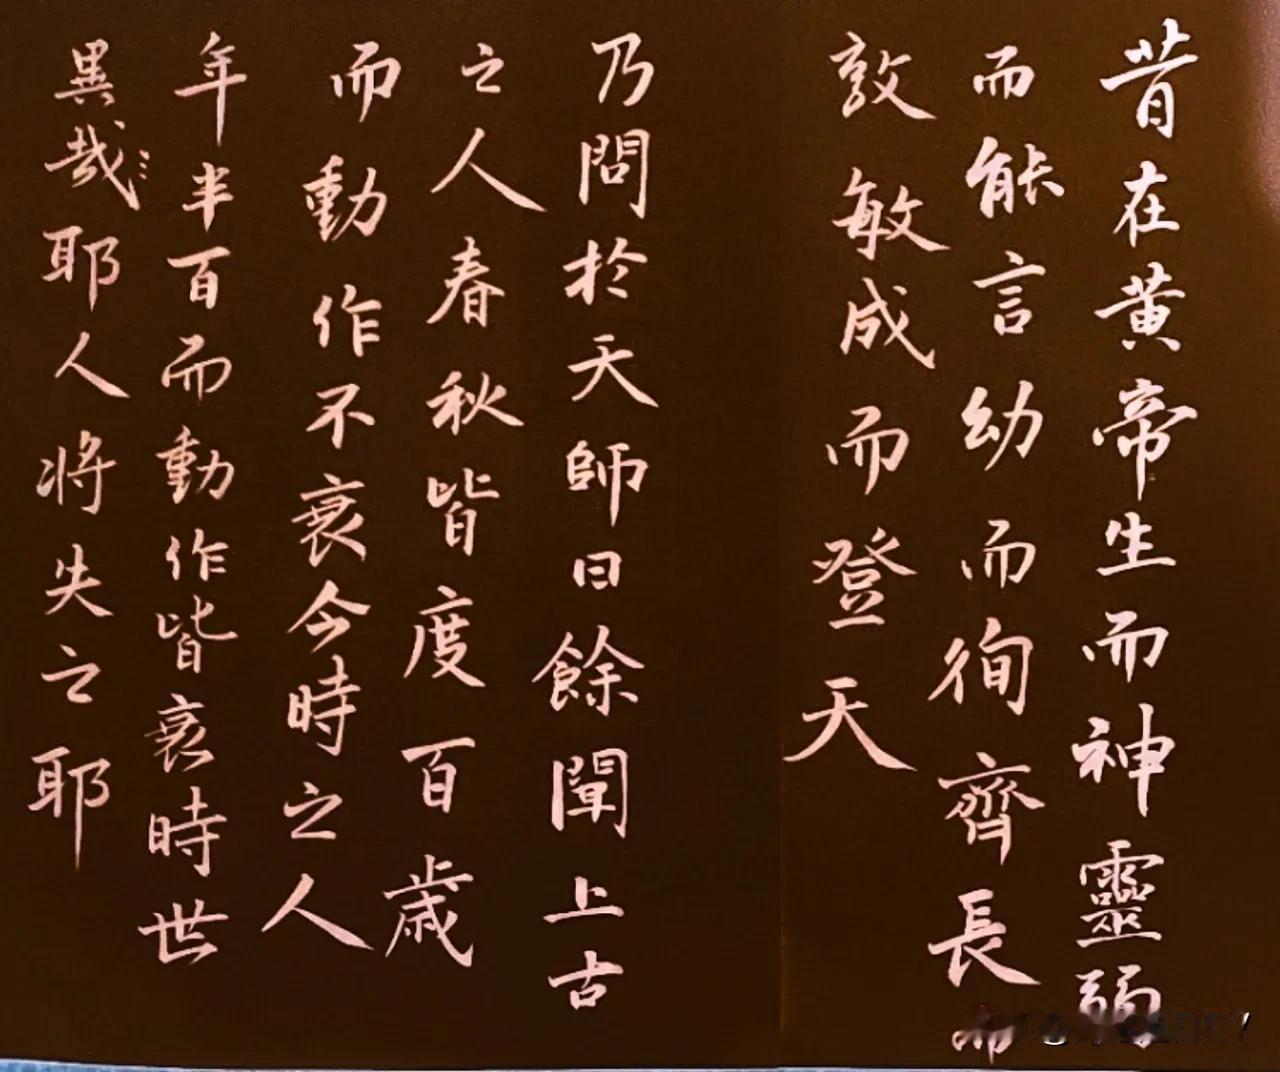 昔在黃帝生而神靈弱
而能言幼而徇齊長而
敦敏成而登天
乃問於天師曰餘聞上古
之人春秋皆度百歲
而動作不衰今時之人
年半百而動作皆衰時世
異哉耶人將失之耶